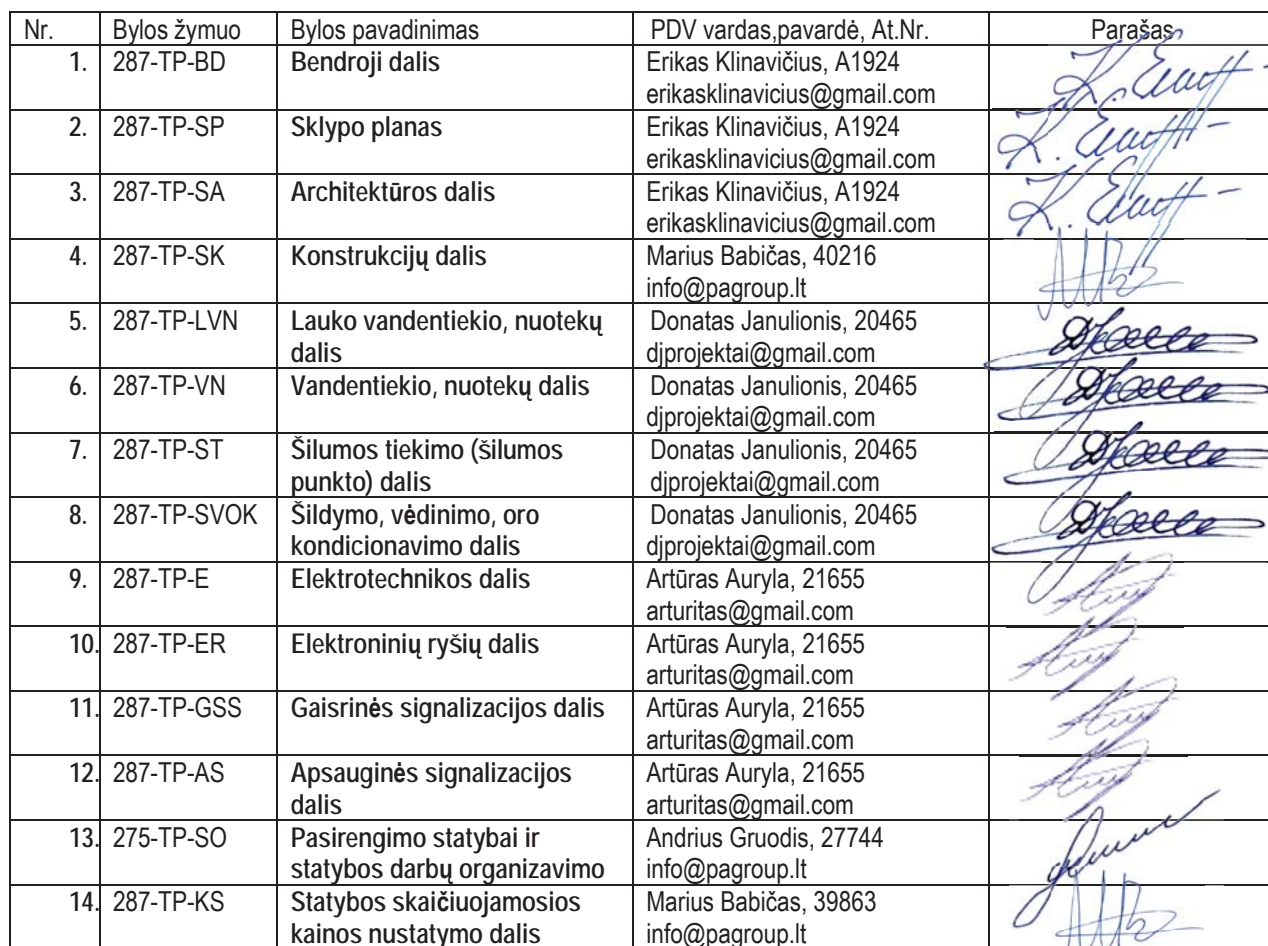 Nr. Bylos žymuo Bylos pavadinimas PDV vardas,pavardė, At.Nr. Parašas
1. 287-TP-BD Bendroji dalis Erikas Klinavičius, A1924
erikasklinavicius@gmail.com
2. 287-TP-SP Sklypo planas Erikas Klinavičius, A1924
erikasklinavicius@gmail.com
3. 287-TP-SA Architektūros dalis Erikas Klinavičius, A1924
erikasklinavicius@gmail.com
4. 287-TP-SK Konstrukcijų dalis Marius Babičas, 40216
info@pagroup.lt
5. 287-TP-LVN Lauko vandentiekio, nuotekų Donatas Janulionis, 20465
dalis djprojektai@gmail.com
6. 287-TP-VN Vandentiekio, nuotekų dalis Donatas Janulionis, 20465
djprojektai@gmail.com
7. 287-TP-ST Šilumos tiekimo (šilumos Donatas Janulionis, 20465
punkto) dalis djprojektai@gmail.com
8. 287-TP-SVOK Šildymo, vėdinimo, oro Donatas Janulionis, 20465
kondicionavimo dalis djprojektai@gmail.com
9. 287-TP-E Elektrotechnikos dalis Artūras Auryla, 21655
arturitas@gmail.com
10. 287-TP-ER Elektroninių ryšių dalis Artūras Auryla, 21655
arturitas@gmail.com
11. 287-TP-GSS Gaisrinės signalizacijos dalis Artūras Auryla, 21655
arturitas@gmail.com
12. 287-TP-AS Apsauginės signalizacijos Artūras Auryla, 21655
dalis arturitas@gmail.com
13. 275-TP-SO Pasirengimo statybai ir Andrius Gruodis, 27744
statybos darbų organizavimo info@pagroup.lt
14. 287-TP-KS Statybos skaičiuojamosios Marius Babičas, 39863
kainos nustatymo dalis info@pagroup.lt